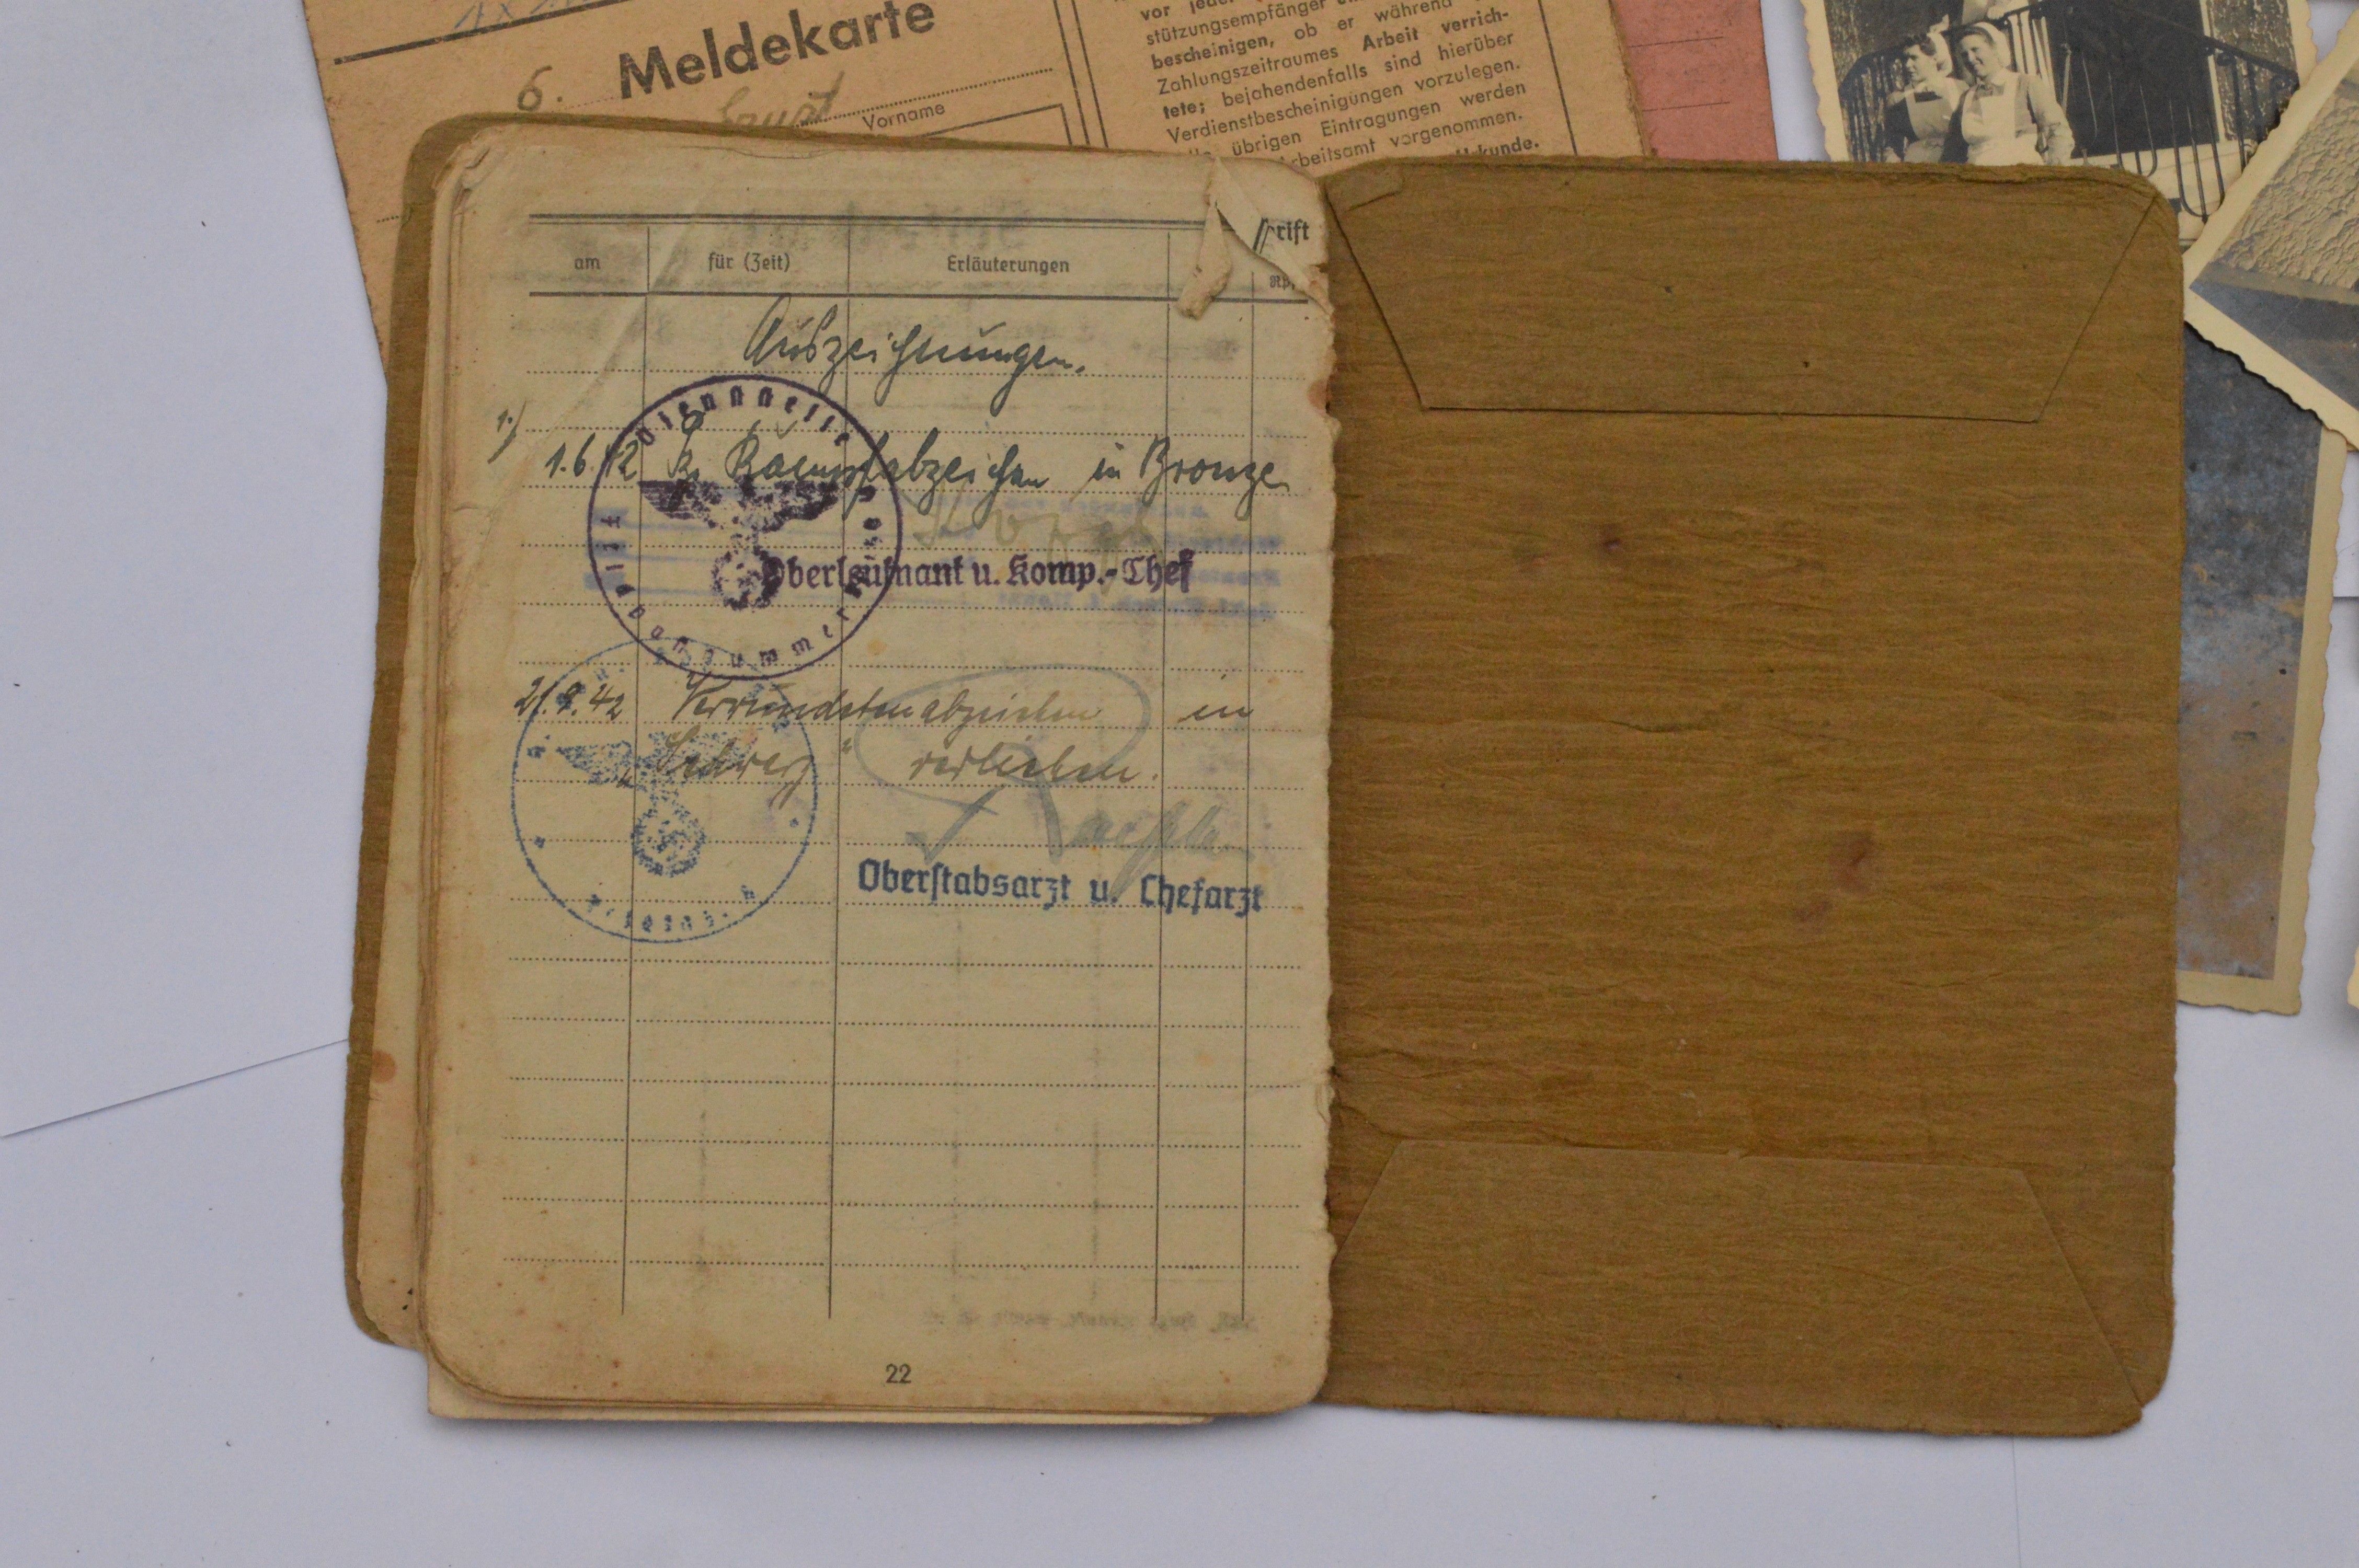 6. Meldekarte
Ernst
Vorname
vor jeder
stützungsempfänger
bescheinigen, ob er während
Zahlungszeitraumes Arbeit verrich-
tete; bejahendenfalls sind hierüber
Verdienstbescheinigungen vorzulegen.
übrigen Eintragungen werden
vorgenommen.
am für (Zeit) Erläuterungen
Auszeichnungen.
1.)
1.6.42 Kampfabzeichen in Bronze
Dienststelle Feldpostnummer
Oberleutnant u. Komp.-Chef
21.9.42 Verwundetenabzeichen in
„Schwarz“ verliehen.
Oberstabsarzt u. Chefarzt
22